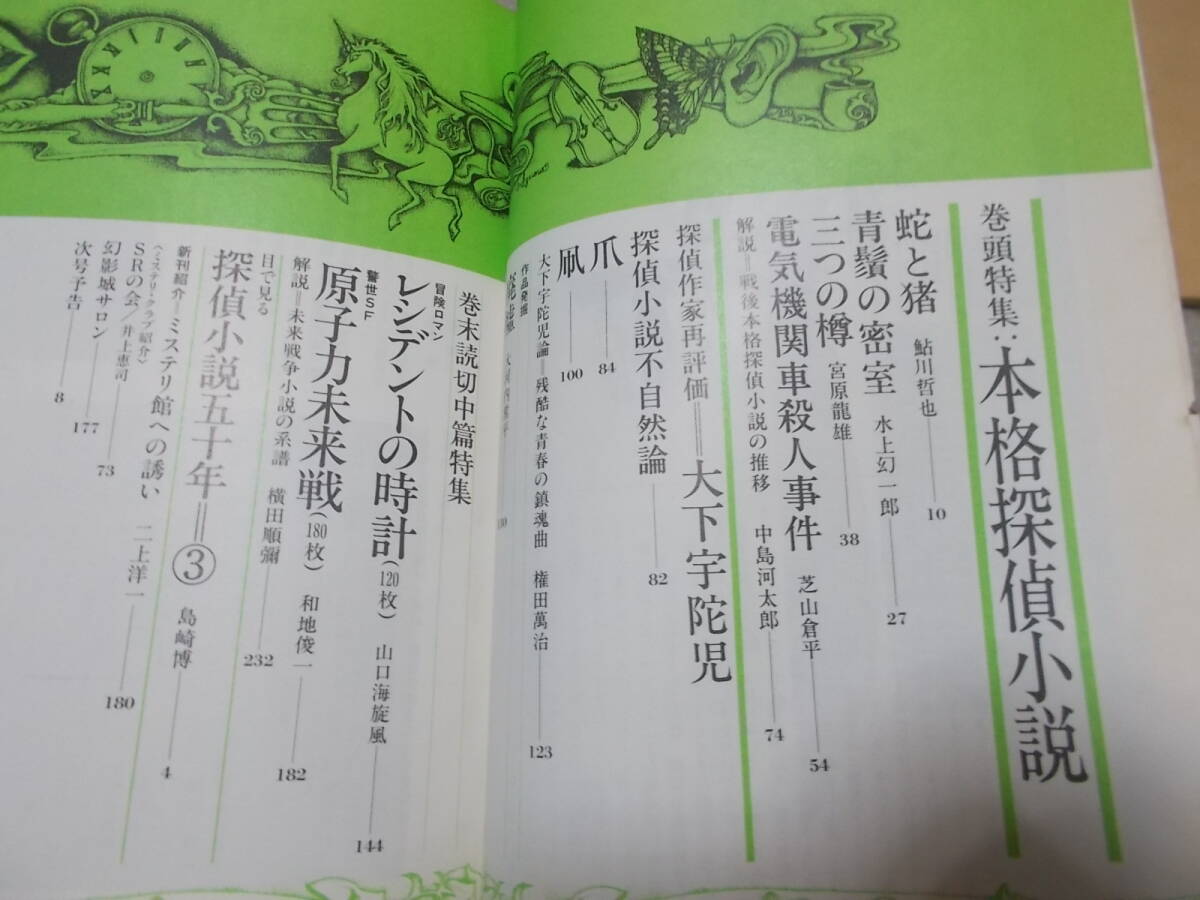 巻頭特集:本格探偵小説
蛇と猪 鮎川哲也 10
青鬚の密室 水上幻一郎 27
三つの樽 宮原龍雄 38
電気機関車殺人事件 芝山倉平 54
解説=戦後本格探偵小説の推移 中島河太郎 74
探偵作家再評価=大下宇陀児
探偵小説不自然論 82
爪 84
凧 100
大下宇陀児論=残酷な青春の鎮魂曲 権田萬治 123
作品発掘
巻末読切中篇特集
冒険ロマン
レシデントの時計(120枚) 山口海旋風 144
警世SF
原子力未来戦(180枚) 和地俊一 182
解説=未来戦争小説の系譜 横田順彌 232
目で見る
探偵小説五十年=③ 島崎博 4
新刊紹介=ミステリ館への誘い 二上洋一 180
〈ミステリ・クラブ紹介〉
SRの会/井上恵司 73
幻影城サロン 177
次号予告 8